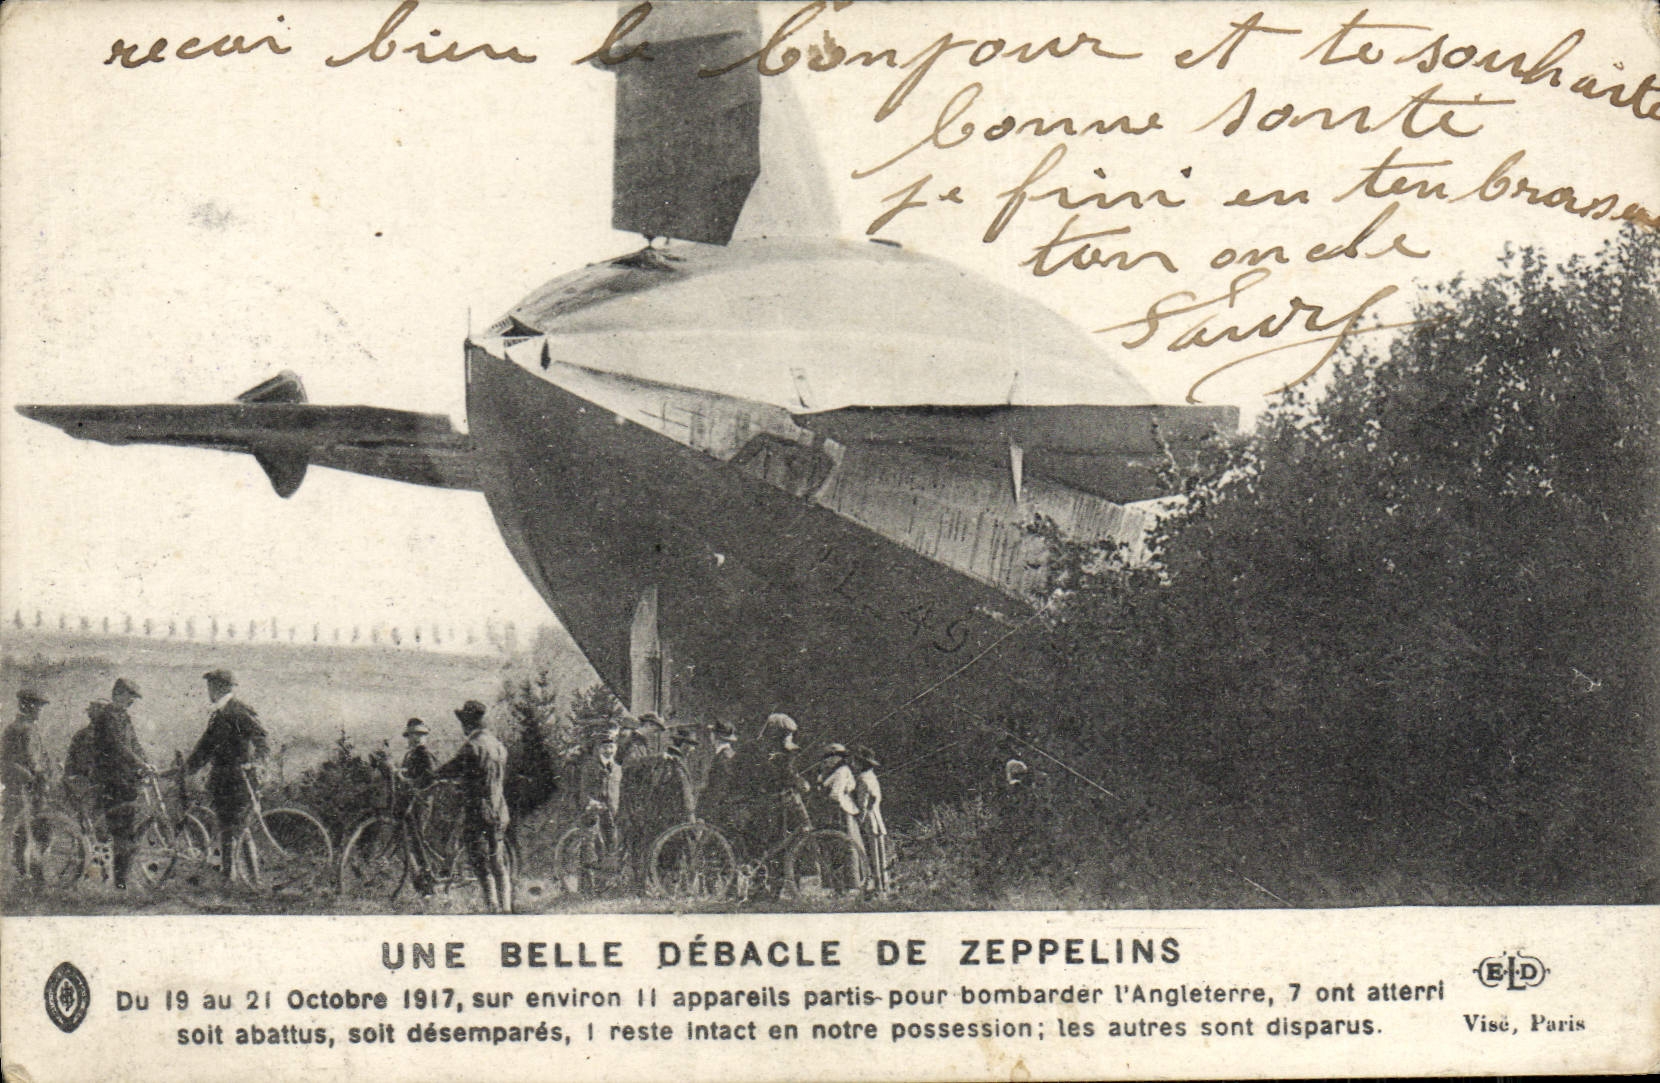 recoi bien le bonjour et te souhaite
bonne santé
je fini en tenbrasen
ton oncle
L-49
UNE BELLE DÉBACLE DE ZEPPELINS
Du 19 au 21 Octobre 1917, sur environ 11 appareils partis pour bombarder l'Angleterre, 7 ont atterri
soit abattus, soit désemparés, 1 reste intact en notre possession; les autres sont disparus.
ELD
Visé, Paris